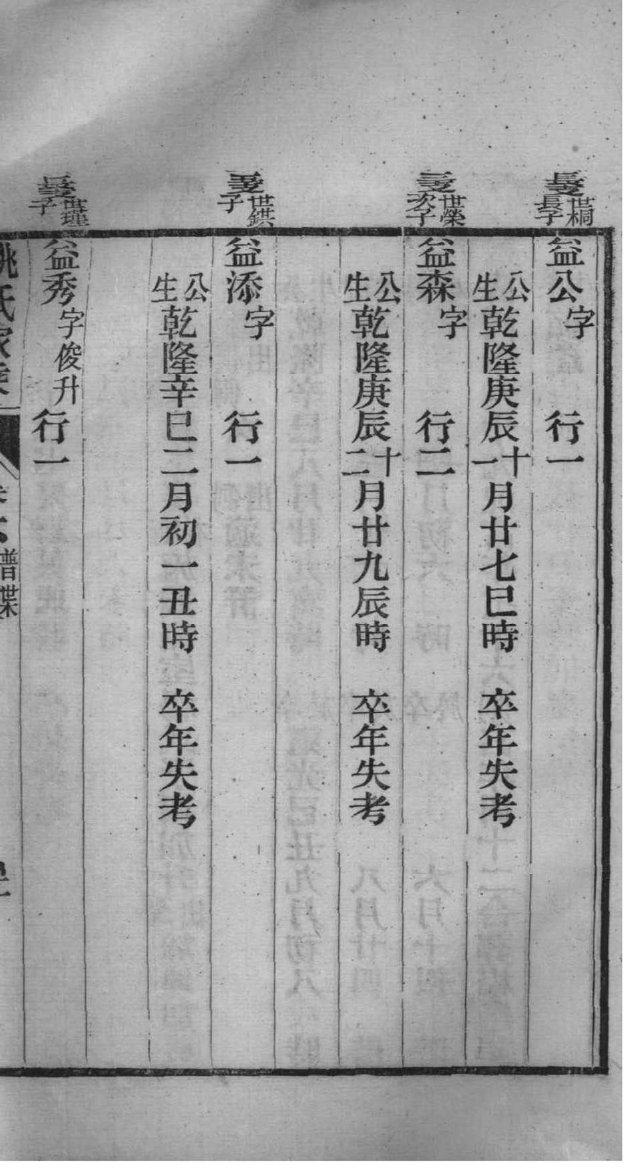 世桐長子
益公字　行一
公生乾隆庚辰十一月廿七巳時　卒年失考
世榮次子
益森字　行二
公生乾隆庚辰十二月廿九辰時　卒年失考
世鉷子
益添字　行一
公生乾隆辛巳二月初一丑時　卒年失考
世瑾子
益秀字俊升　行一
姚氏家乘
譜牒